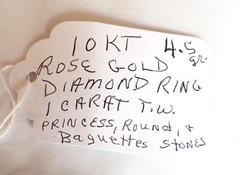 10 KT 4.5 gr.
ROSE GOLD
DIAMOND RING
1 CARAT T.W.
PRINCESS, ROUND, +
BAGUETTES STONES